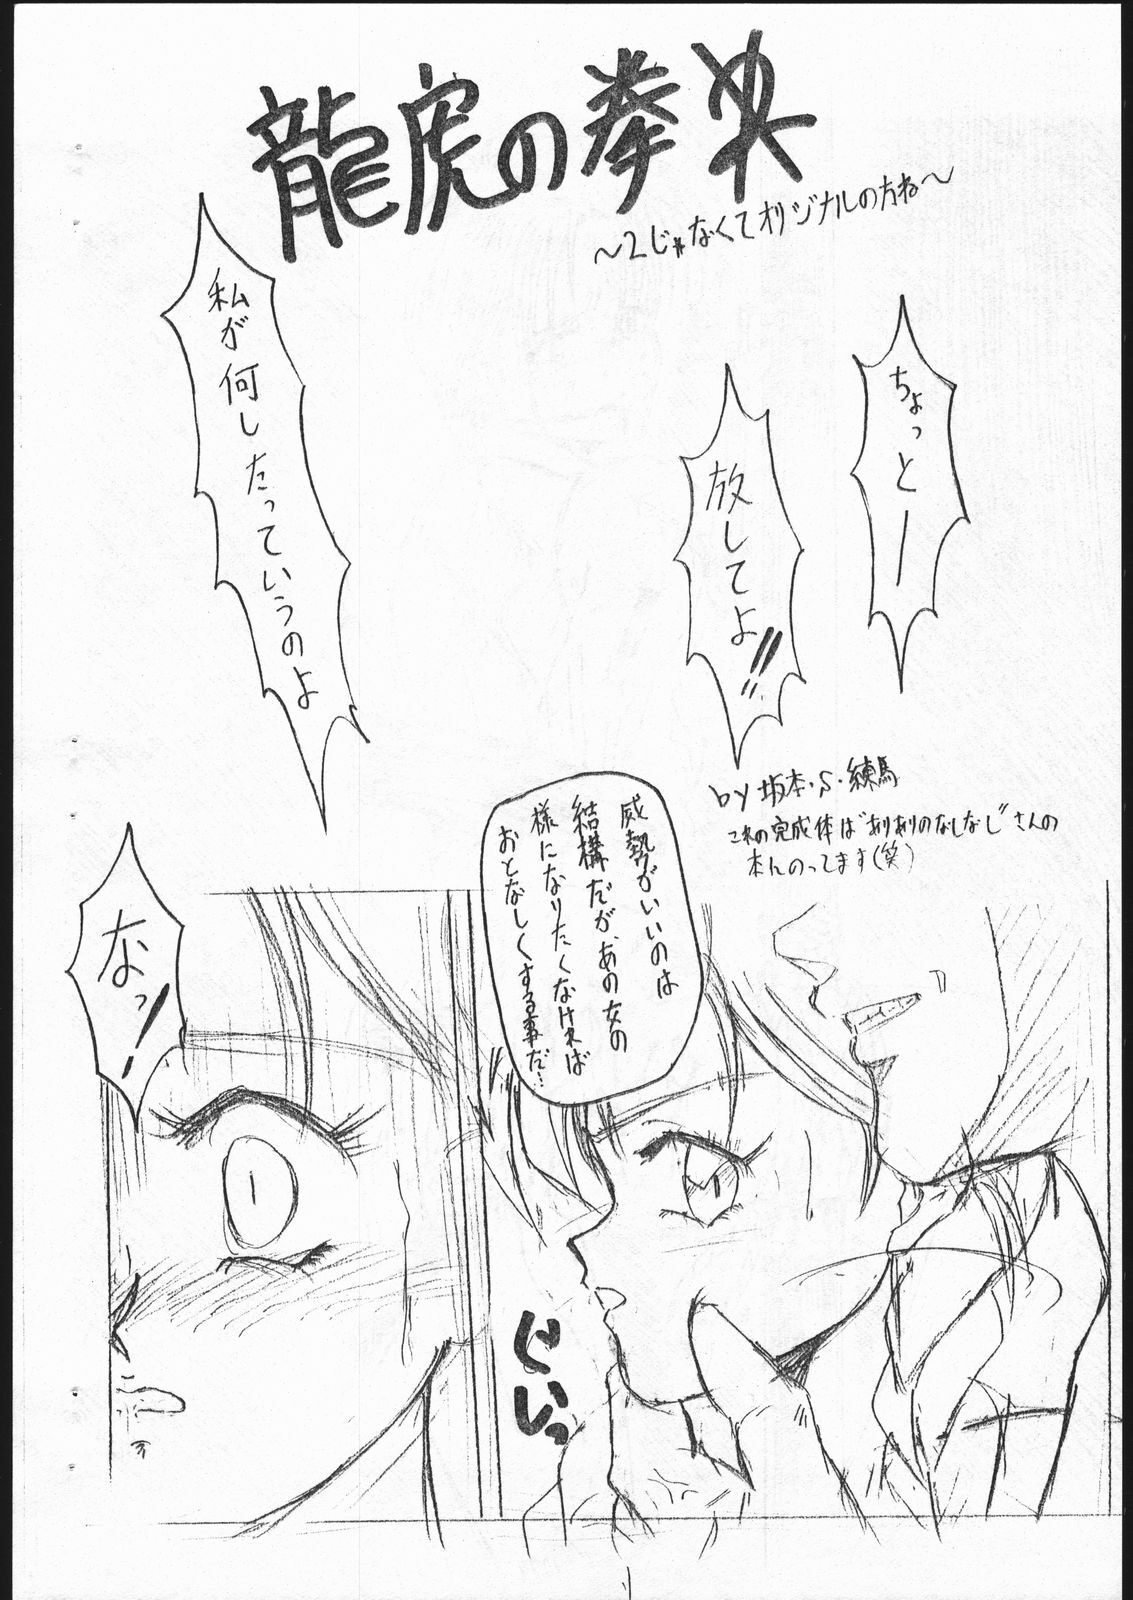 龍虎の拳
～2じゃなくてオリジナルの方ね～
ちょっとー
放してよ!!
私が何し
たっていうのよ
by 坂本・S・練馬
これの完成体は"ありありのなしなし"さんの
本んのってます(笑)
威勢がいいのは
結構だが、あの女の
様になりたくなければ
おとなしくする事だ…
なっ!
ぐいっ